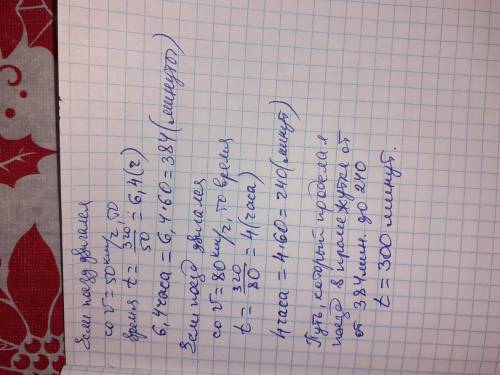 Если поезд двигался
со v = 50 км/г, то
время t = 320/50 = 6,4 (г)
6,4 часа = 6,4·60 = 384 (минуты)
Если поезд двигался
со v = 80 км/г, то время
t = 320/80 = 4 (часа)
4 часа = 4·60 = 240 (минут)
Путь который проделал
поезд в промежутке от
от 384 мин. до 240
t = 300 минут.